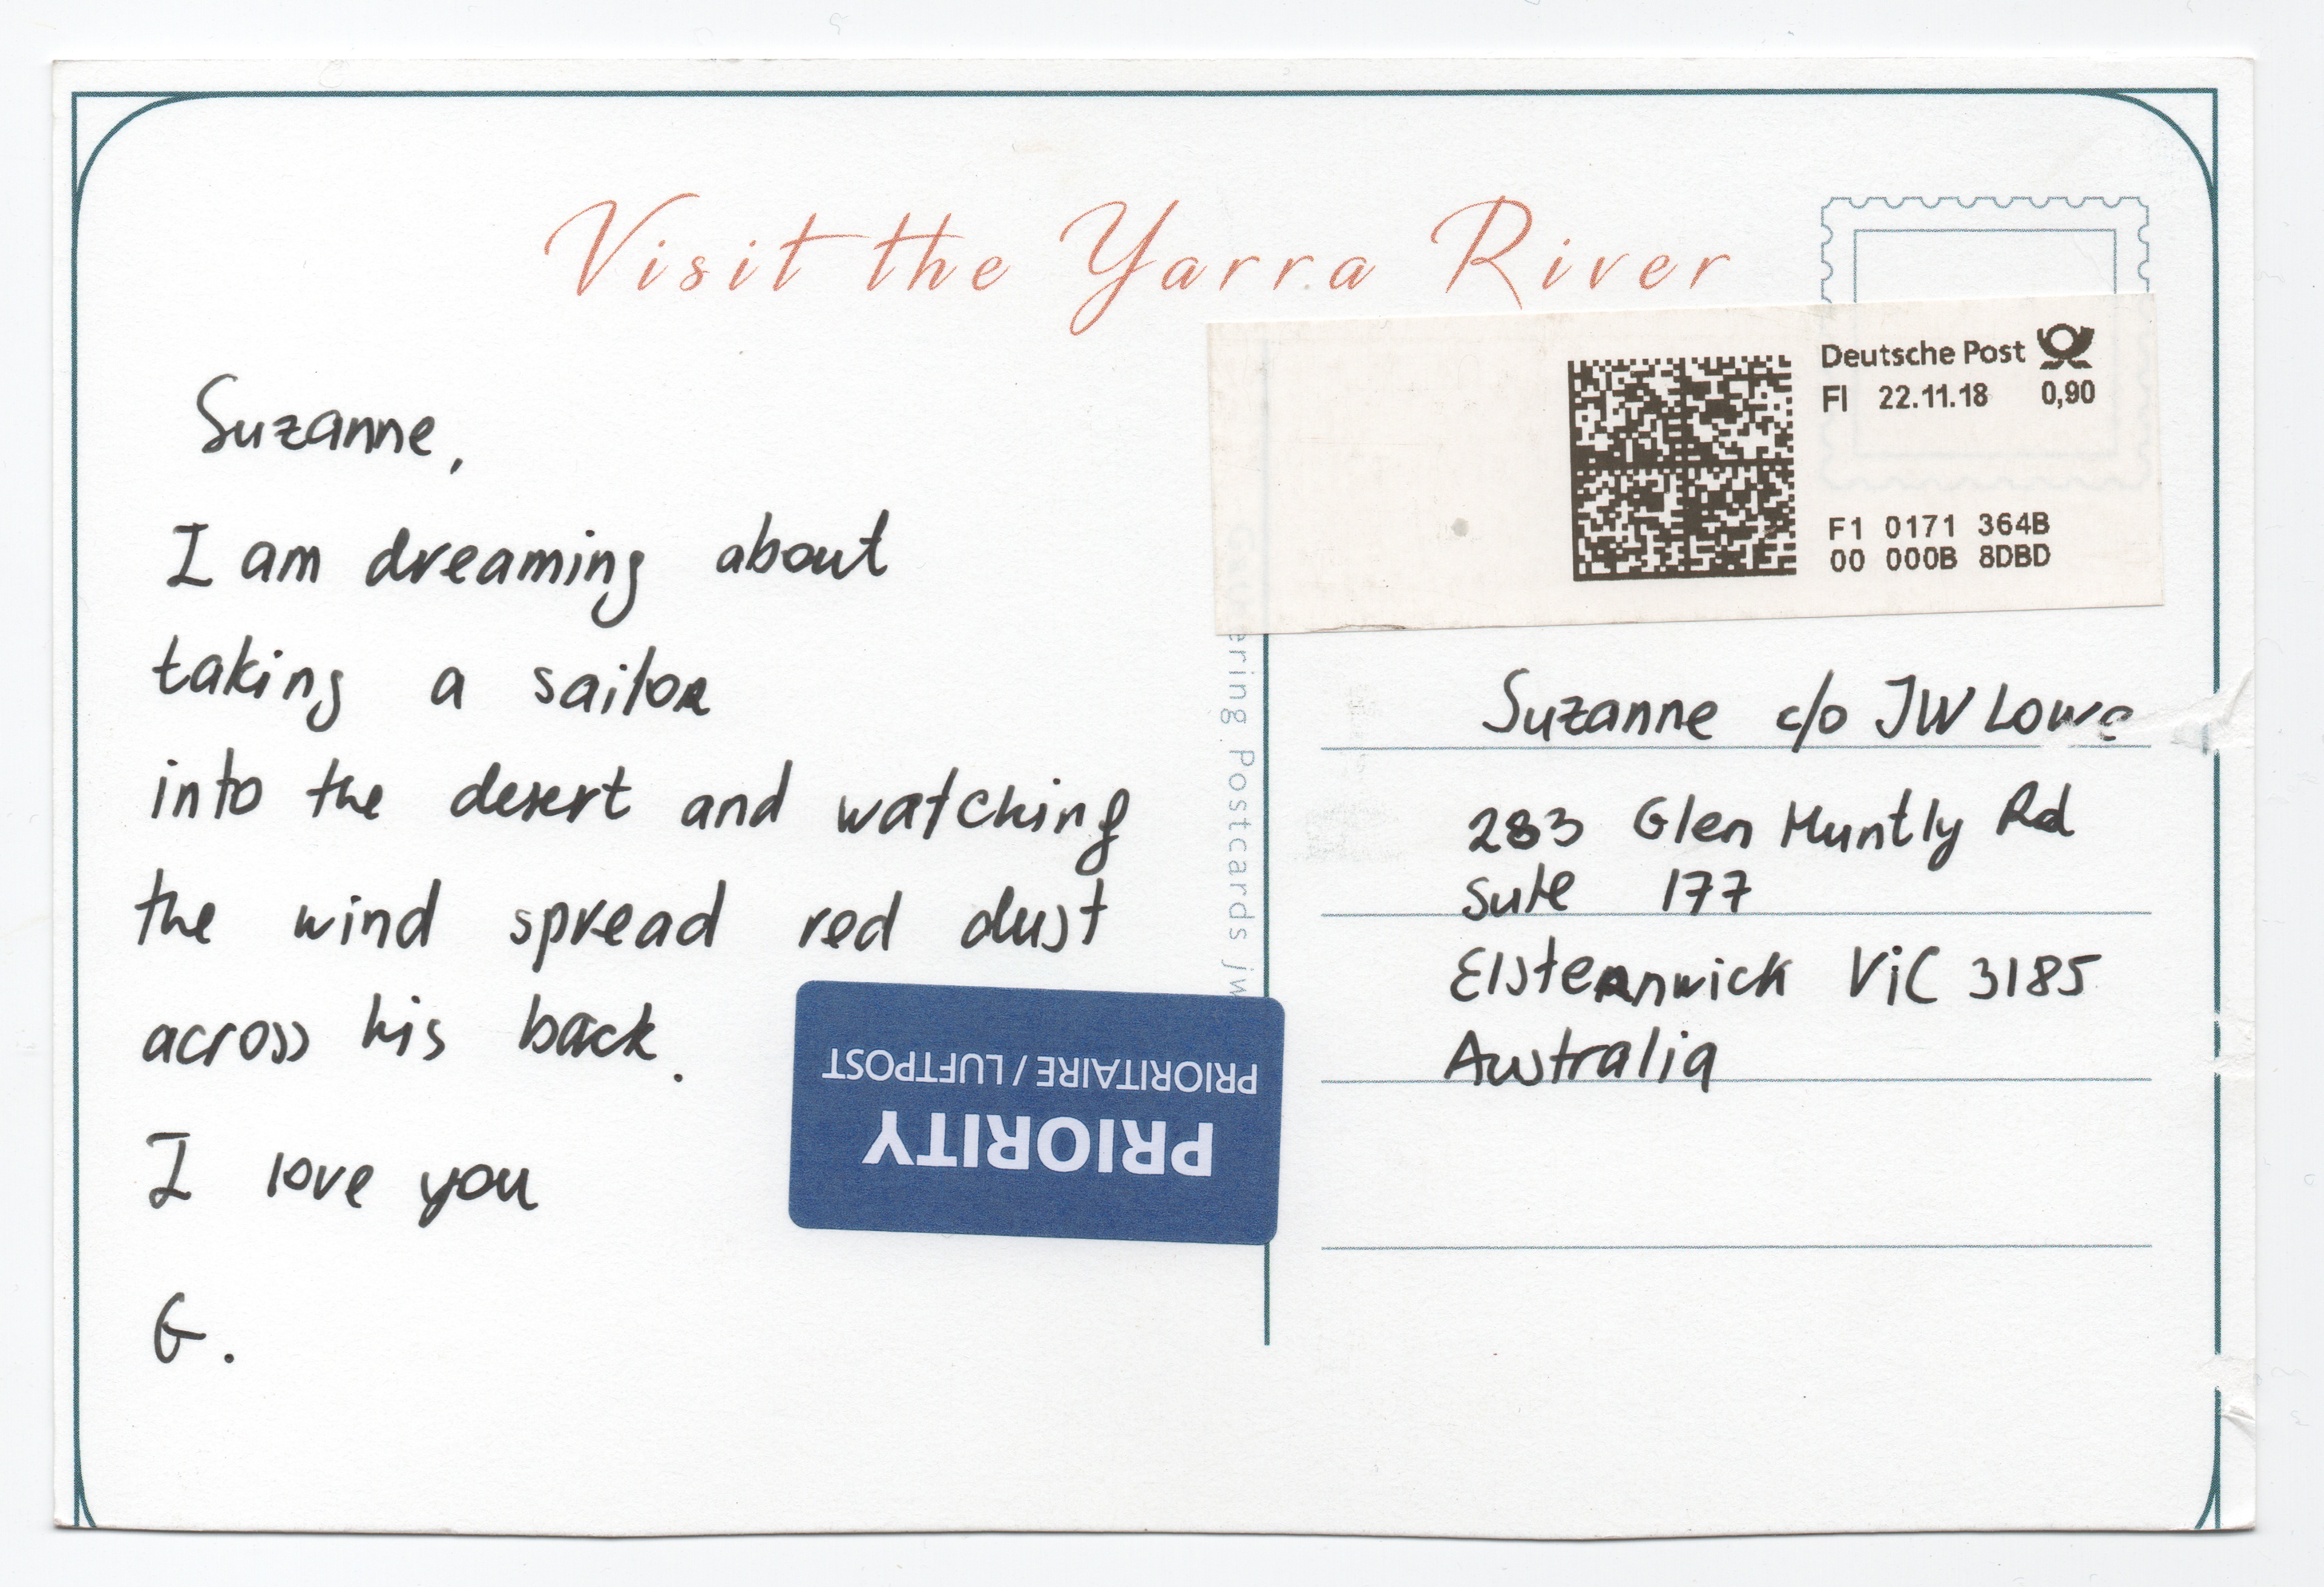 Visit the Yarra River
Deutsche Post
FI 22.11.18 0,90
F1 0171 364B
00 000B 8DBD
Suzanne,
I am dreaming about
taking a sailor
into the desert and watching
the wind spread red dust
across his back.
I love you
G.
ering Postcards jw
PRIORITY
PRIORITAIRE / LUFTPOST
Suzanne c/o JW Lowe
283 Glen Huntly Rd
Suite 177
Elsternwick ViC 3185
Australia